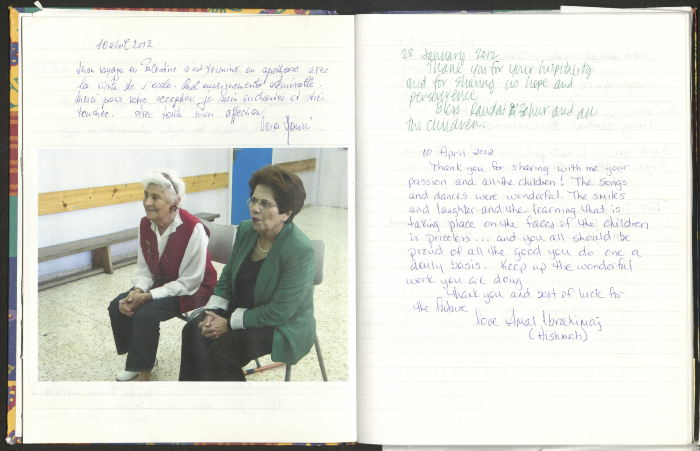 10 avril 2012
Mon voyage en Palestine s'est terminé en apothéose avec
la visite de l'école. Quel enseignement admirable.
Merci pour votre réception je suis enchantée et très
touchée. Avec toute mon affection
Vera
28 January 2012
Thank you for your hospitality
and for sharing us hope and
perseverence
Bless Randa & Zahur and all
the children
10 April 2012
Thank you for sharing with me your
passion and all the children! The songs
and dances were wonderful. The smiles
and laughter and the learning that is
taking place on the faces if the children
is priceless... and you all should be
proud of all the good you do one a
daily basis. Keep up the wonderful
work you are doing
Thank you and best of luck for
the future
love Amal Ibrahimaj
(Hishmeh)